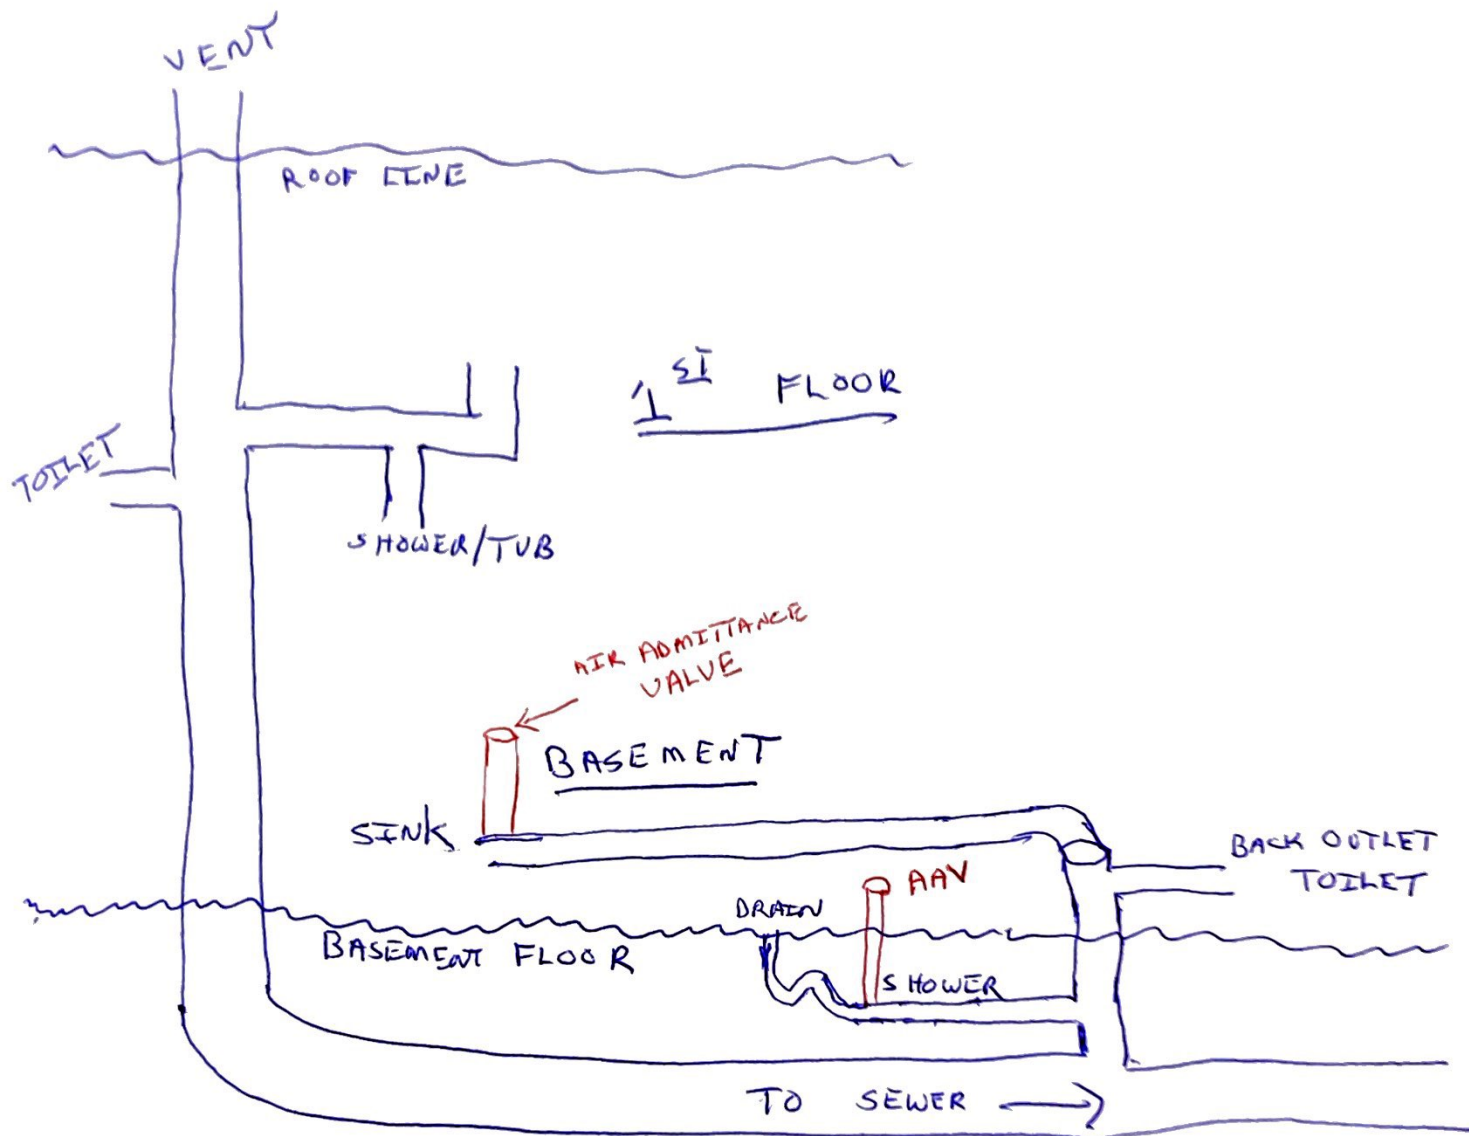 VENT
ROOF LINE
1ST FLOOR
TOILET
SHOWER/TUB
AIR ADMITTANCE
VALVE
BASEMENT
SINK
BACK OUTLET
TOILET
AAV
DRAIN
BASEMENT FLOOR
SHOWER
TO SEWER